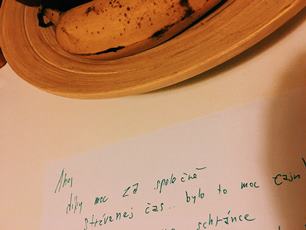 Ahoj
díky moc za společně
strávenej čas.. bylo to moc fajn!
schránce